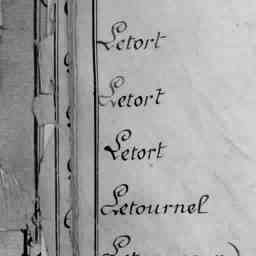 Letort
Letort
Letort
Letournel